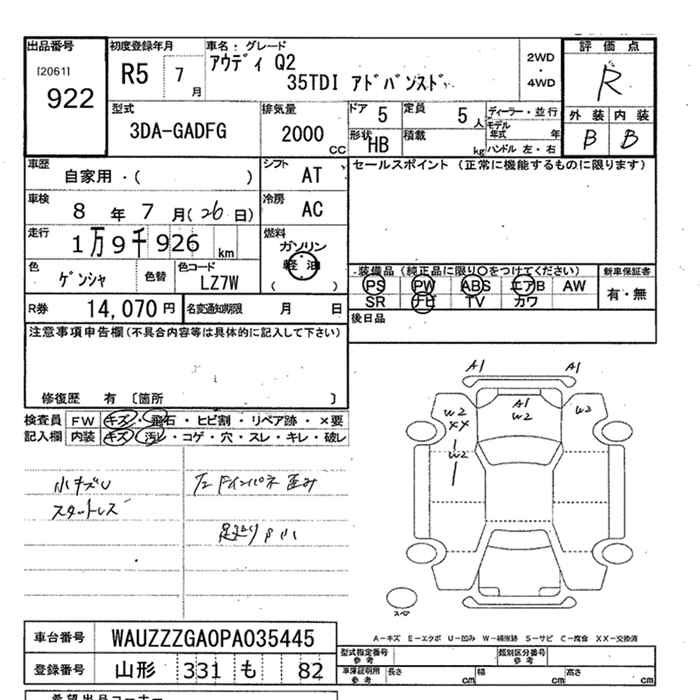 出品番号 初度登録年月 車名:グレード 評価点
[2061] R5 7月 アウディ Q2 2WD
922 35TDI アドバンスド 4WD R
型式 排気量 ドア 5 定員 5人 ディーラー・並行 外装 内装
3DA-GADFG 2000 CC 形状 HB 積載 kg モデル年式 年 ハンドル 左・右 B B
車歴 自家用・( ) シフト AT セールスポイント (正常に機能するものに限ります)
車検 8年7月(26日) 冷房 AC
走行 1万9千926km 燃料 ガソリン 軽油 ( )
色 ゲンシャ 色替 色コード LZ7W 装備品(純正品に限り○をつけてください) 新車保証書
PS PW ABS エアB AW 有・無
R券 14,070円 名変通知期限 月 日 SR ナビ TV カワ
注意事項申告欄(不具合内容等は具体的に記入して下さい) 後日品
修復歴 有 〔箇所 〕
検査員 FW キズ・飛石・ヒビ割・リペア跡・×要
記入欄 内装 キズ・汚レ・コゲ・穴・スレ・キレ・破レ
A1 A1
W2 XX A1 W2 W2
W2
小キズU 左ドインパネ歪み
スタットレス
スペア
A-キズ E-エクボ U-凹み W-補修跡 S-サビ C-腐食 XX-交換済
車台番号 WAUZZZGA0PA035445 型式指定番号 参考 類別区分番号 参考
登録番号 山形 331 も 82 車庫証明用 参考 長さ cm 幅 cm 高さ cm
希望出品コーナー